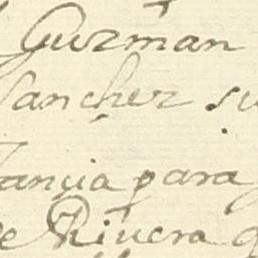 Guzman
Sanchez su
tancia para
de Rivera q